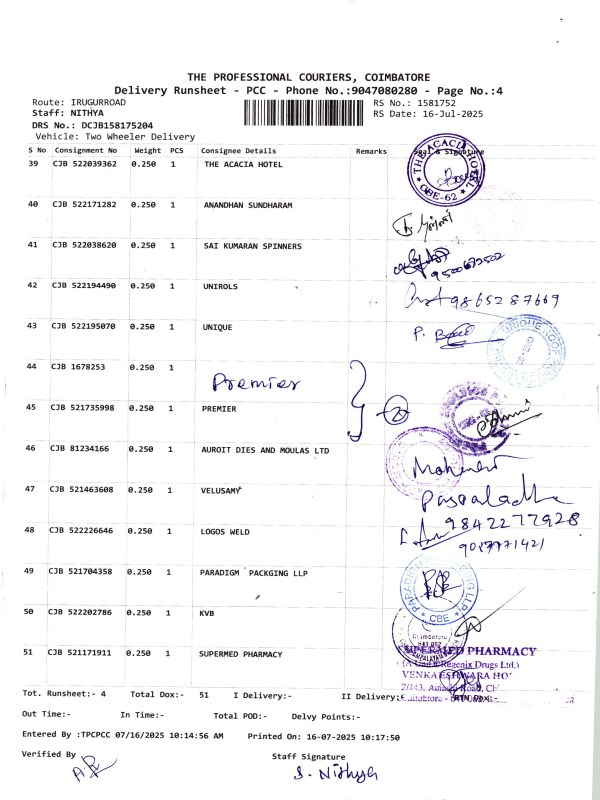 THE PROFESSIONAL COURIERS, COIMBATORE
Delivery Runsheet - PCC - Phone No.:9047080280 - Page No.:4
Route: IRUGURROAD RS No.: 1581752
Staff: NITHYA RS Date: 16-Jul-2025
DRS No.: DCJB158175204
Vehicle: Two Wheeler Delivery
S No Consignment No Weight PCS Consignee Details Remarks Seal & Signature
39 CJB 522039362 0.250 1 THE ACACIA HOTEL
THE ACACIA HOTEL CBE-62
40 CJB 522171282 0.250 1 ANANDHAN SUNDHARAM
41 CJB 522038620 0.250 1 SAI KUMARAN SPINNERS
42 CJB 522194490 0.250 1 UNIROLS 9865287669
43 CJB 522195070 0.250 1 UNIQUE P.
44 CJB 1678253 0.250 1
Premier
45 CJB 521735998 0.250 1 PREMIER 2
46 CJB 81234166 0.250 1 AUROIT DIES AND MOULAS LTD
47 CJB 521463608 0.250 1 VELUSAMY
9842277928
48 CJB 522226646 0.250 1 LOGOS WELD
49 CJB 521704358 0.250 1 PARADIGM PACKGING LLP
CBE
50 CJB 522202786 0.250 1 KVB
51 CJB 521171911 0.250 1 SUPERMED PHARMACY
SUPERMED PHARMACY
(A Unit Regenix Drugs Ltd.)
VENKAESHWARA HO
2/143,
Tot. Runsheet:- 4 Total Dox:- 51 I Delivery:- II Delivery:- RTN Dox:-
Out Time:- In Time:- Total POD:- Delvy Points:-
Entered By :TPCPCC 07/16/2025 10:14:56 AM Printed On: 16-07-2025 10:17:50
Verified By Staff Signature
S. Nithya